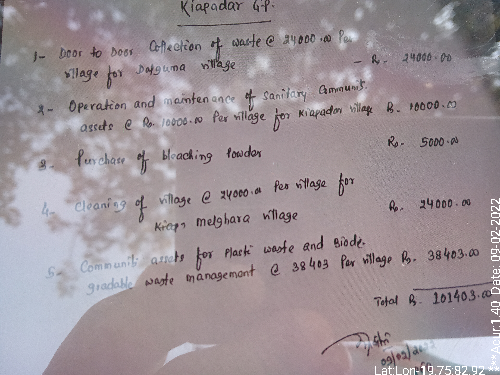 Kiapadar G.P.
1- Door to Door Collection of waste @ 24000.00 Per
village for Dalguma village - Rs. 24000.00
2- Operation and maintenance of Sanitary Communit.
assets @ Rs. 10000.00 Per village for Kiapadar village Rs. 10000.00
3. Purchase of bleaching Powder Rs. 5000.00
4- Cleaning of village @ 24000.00 Per village for
Melghara village Rs. 24000.00
5- Communiti assets for Plasti waste and Biode.
gradable waste management @ 38403 Per village Rs. 38403.00
Total Rs. 101403.00
09/02/2022
Lat Lon-19.7582,92
***Acur:1.40 Date: 09-02-2022